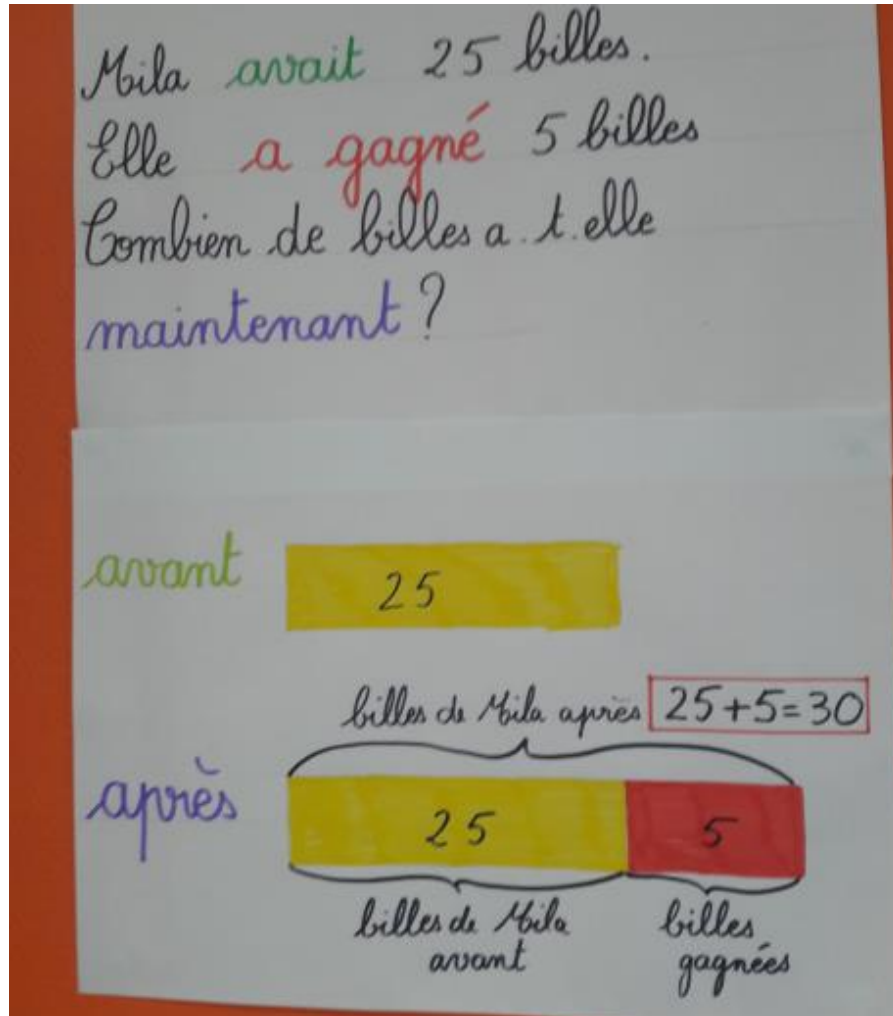 Mila avait 25 billes.
Elle a gagné 5 billes
Combien de billes a.t.elle
maintenant ?
avant
25
billes de Mila après 25+5=30
après
25 5
billes de Mila billes
avant gagnées